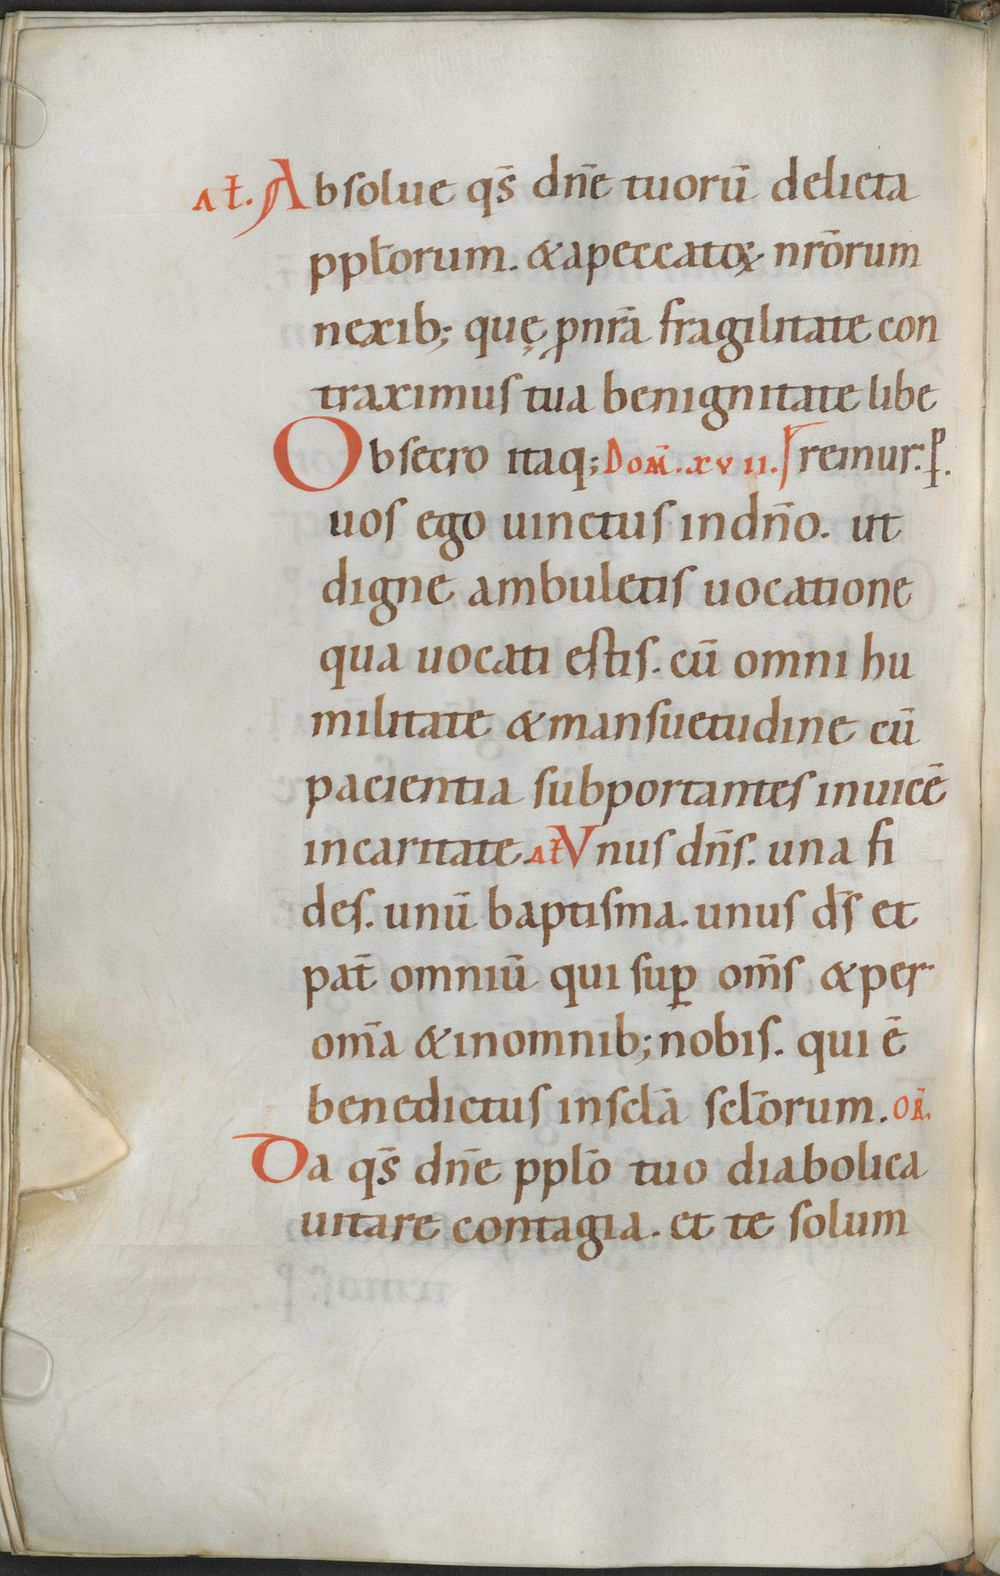 ał. Absolue qs̄ dn̄e tuorū delicta
pplōrum. & a peccatoꝝ nr̄orum
nexib; quę ꝓ nr̄a fragilitate con
traximus tua benignitate libe
Obsecro itaq; Dom̄. xvii. remur. ꝑ.
uos ego uinctus in dn̄o. ut
digne ambuletis uocatione
qua uocati estis. cū omni hu
militate & mansuetudine cū
pacientia subportantes inuicē
in caritate. ał Vnus dn̄s. una fi
des. unū baptisma. unus ds̄ et
pat̄ omniū qui suꝑ om̄s & per
om̄a & in omnib; nobis. qui ē
benedictus in sclā sclōrum. OR̄.
Da qs̄ dn̄e pplō tuo diabolica
uitare contagia. et te solum